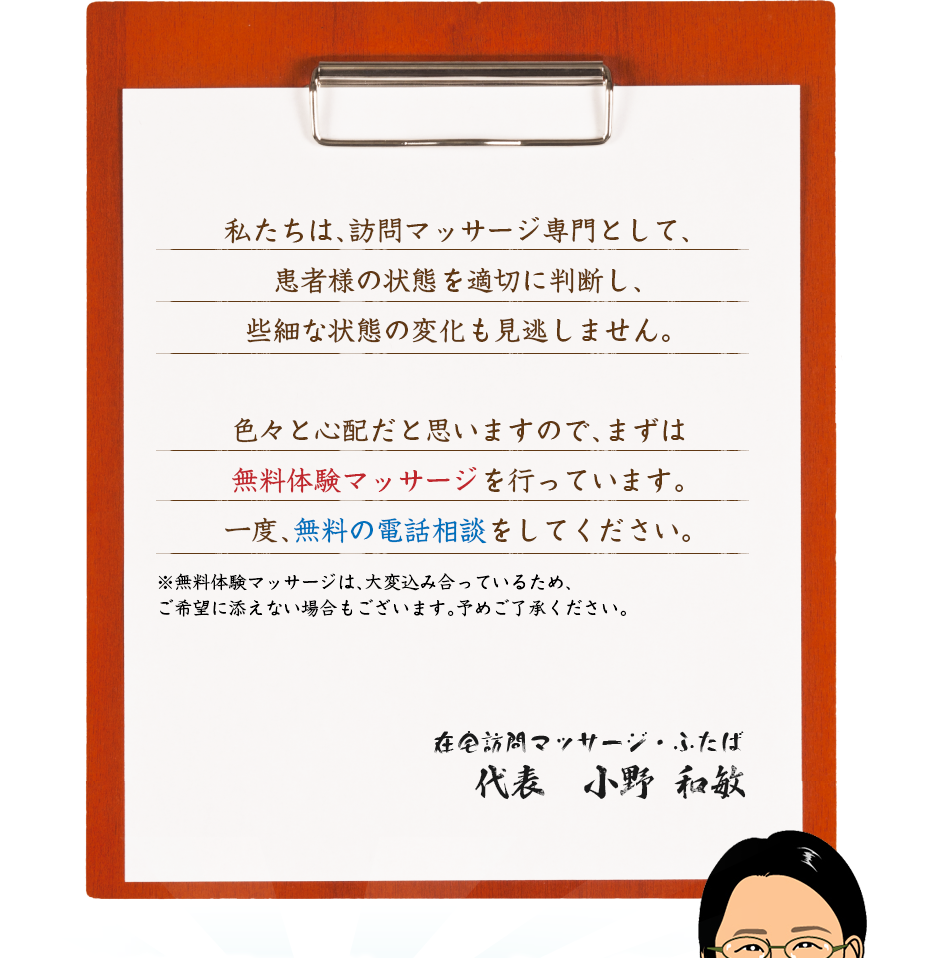 私たちは、訪問マッサージ専門として、
患者様の状態を適切に判断し、
些細な状態の変化も見逃しません。
色々と心配だと思いますので、まずは
無料体験マッサージを行っています。
一度、無料の電話相談をしてください。
※無料体験マッサージは、大変込み合っているため、
ご希望に添えない場合もございます。予めご了承ください。
在宅訪問マッサージ・ふたば
代表 小野 和敏